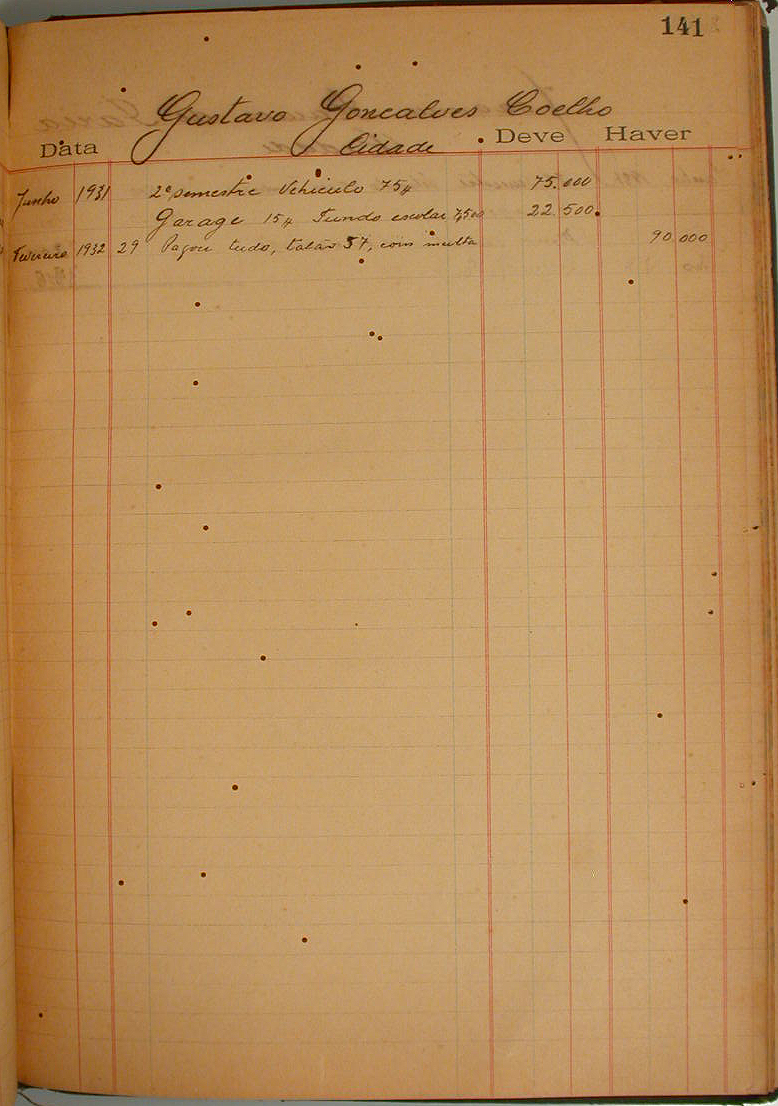 141
Gustavo Goncalves Coelho
Data Cidade Deve Haver
Junho 1931 2º semestre Vehiculo 75$ 75.000
Garage 15$ Fundo escolar 7,500 22.500
Fevereiro 1932 29 Pagou tudo, talão 57, com multa 90.000